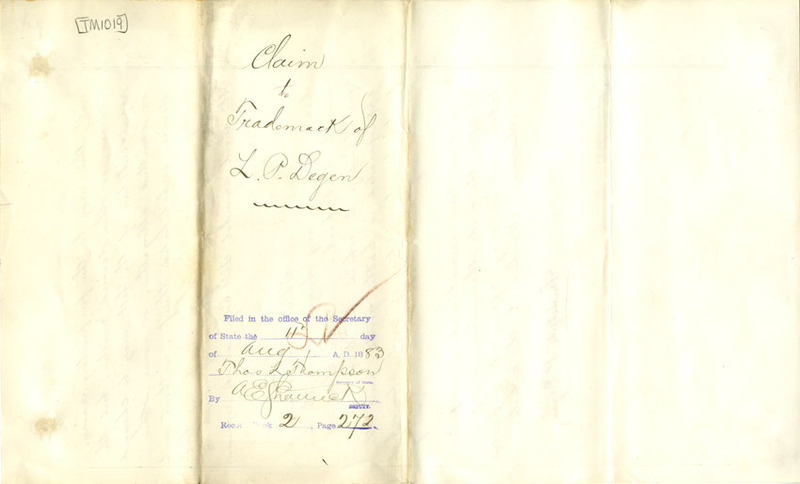 TM1019
Claim
to
Trademack of
L. P. Degen
Filed in the office of the Secretary
of State the 11th day
of Aug A. D. 1883
Thos L. Thompson
Secretary of State.
By A E
DEPUTY.
Book 2, Page 272.